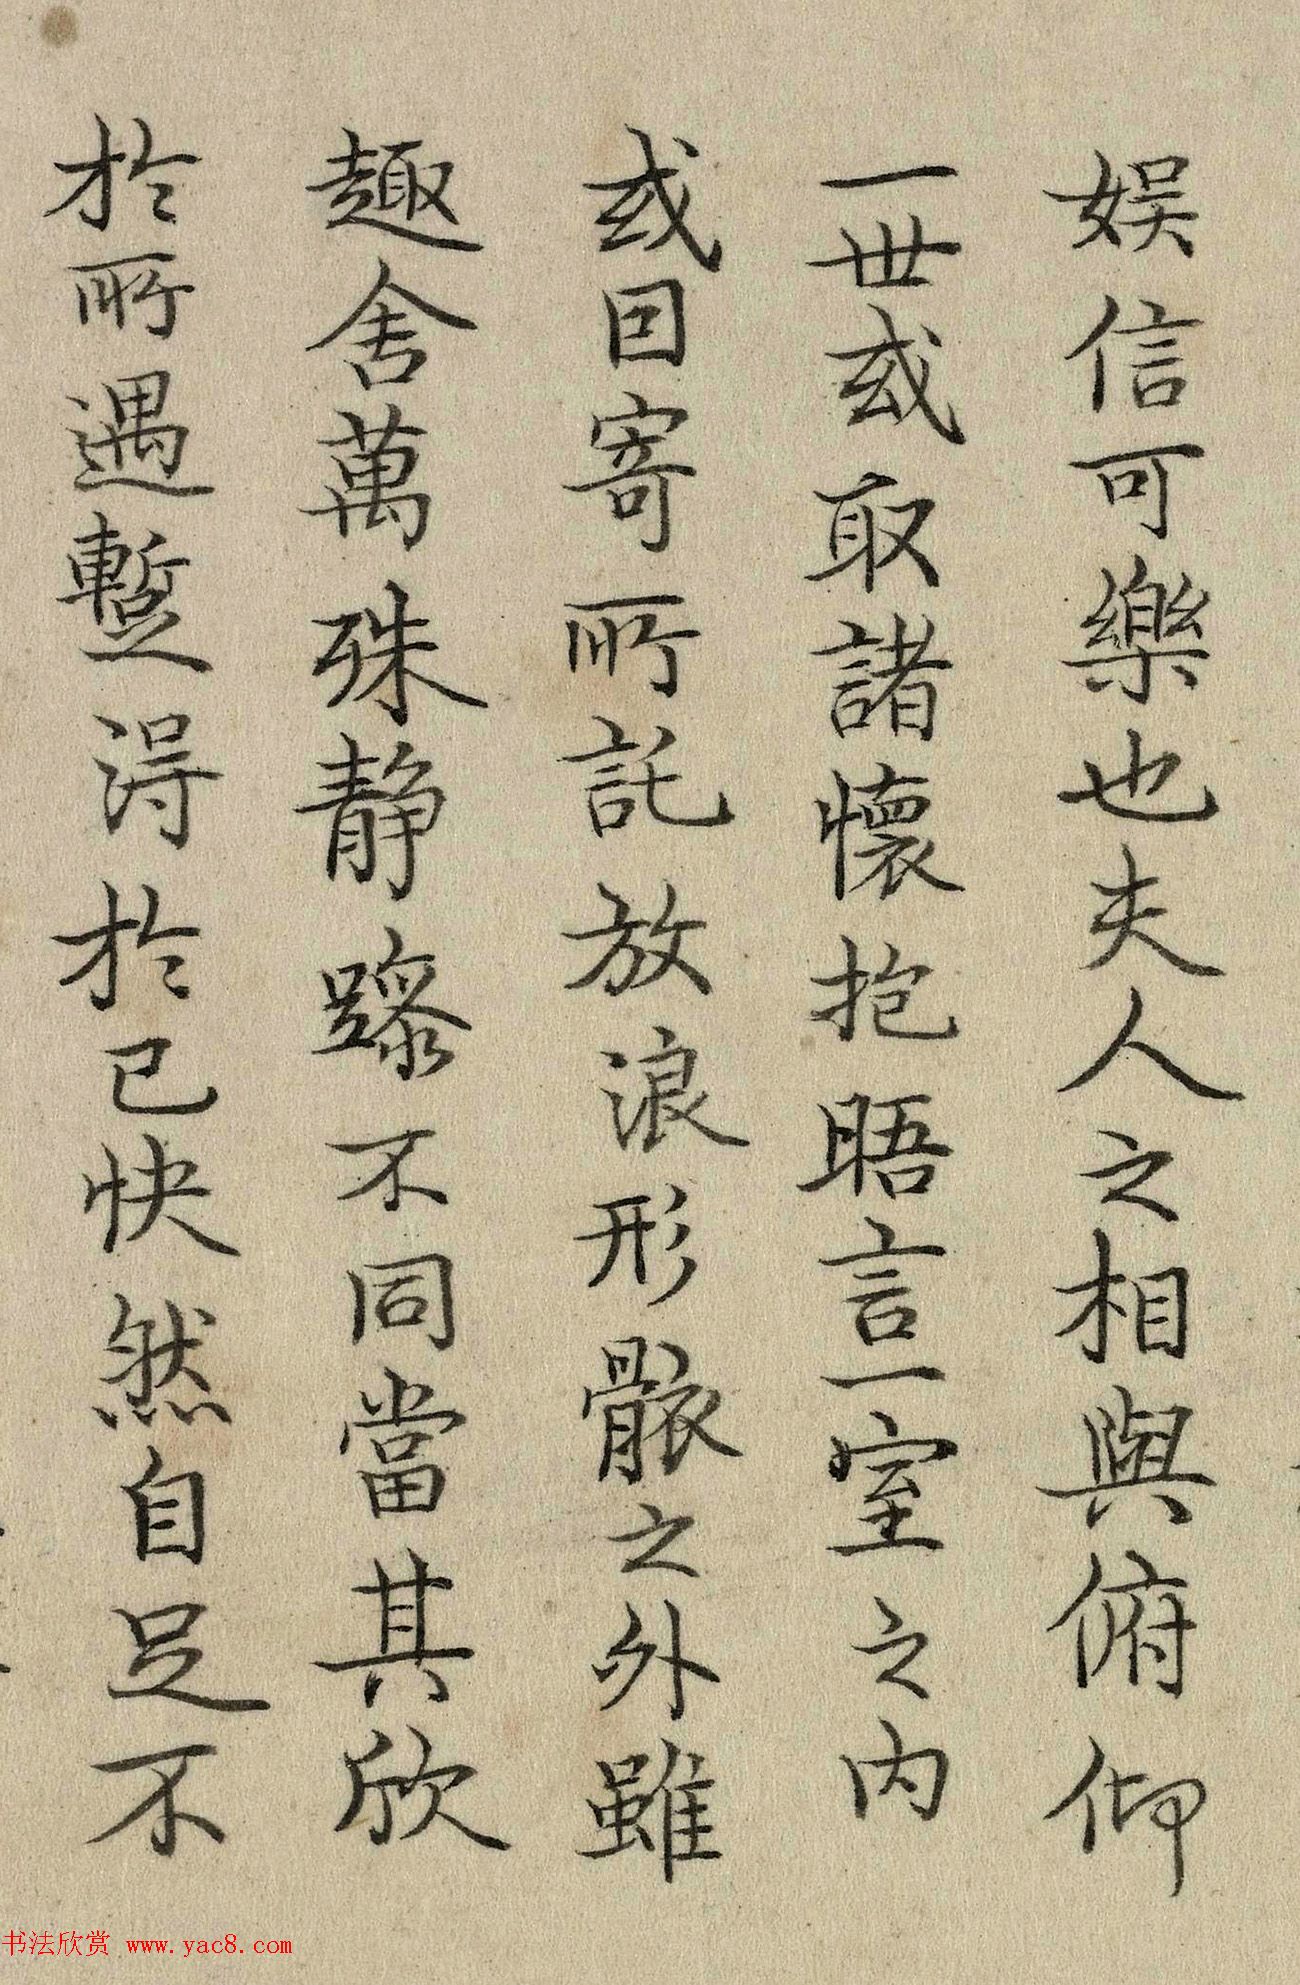 娱信可樂也夫人之相與俯仰
一世或取諸懷抱晤言一室之内
或因寄所託放浪形骸之外雖
趣舍萬殊静躁不同當其欣
於所遇蹔得於己快然自足不
书法欣赏 www.yac8.com